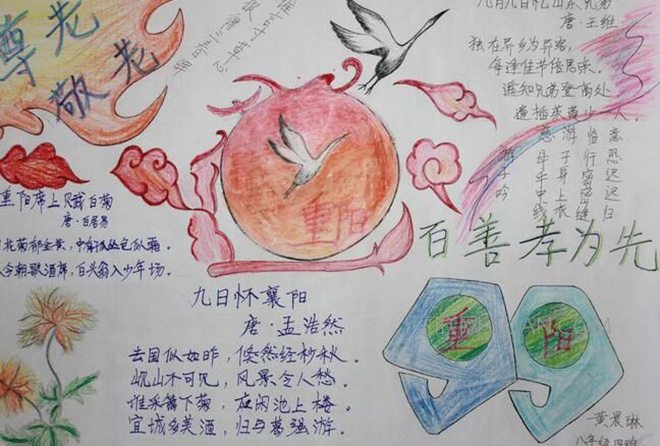 尊老
敬老
谁言寸草心
报得三春晖
九月九日忆山东兄弟
唐·王维
独在异乡为异客，
每逢佳节倍思亲。
遥知兄弟登高处
遍插茱萸少一人。
游子吟
慈母手中线
游子身上衣
临行密密缝
意恐迟迟归
百善孝为先
重阳
重阳席上赋白菊
唐·白居易
菊郁金黄，中有孤丛色似霜。
今朝歌酒席，白头翁入少年场。
九日怀襄阳
唐·孟浩然
去国似如昨，倏然经杪秋。
岘山不可见，风景令人愁。
谁采篱下菊，应闲池上楼。
宜城多美酒，归与葛强游。
重 阳
黄晨琳
八年级四班